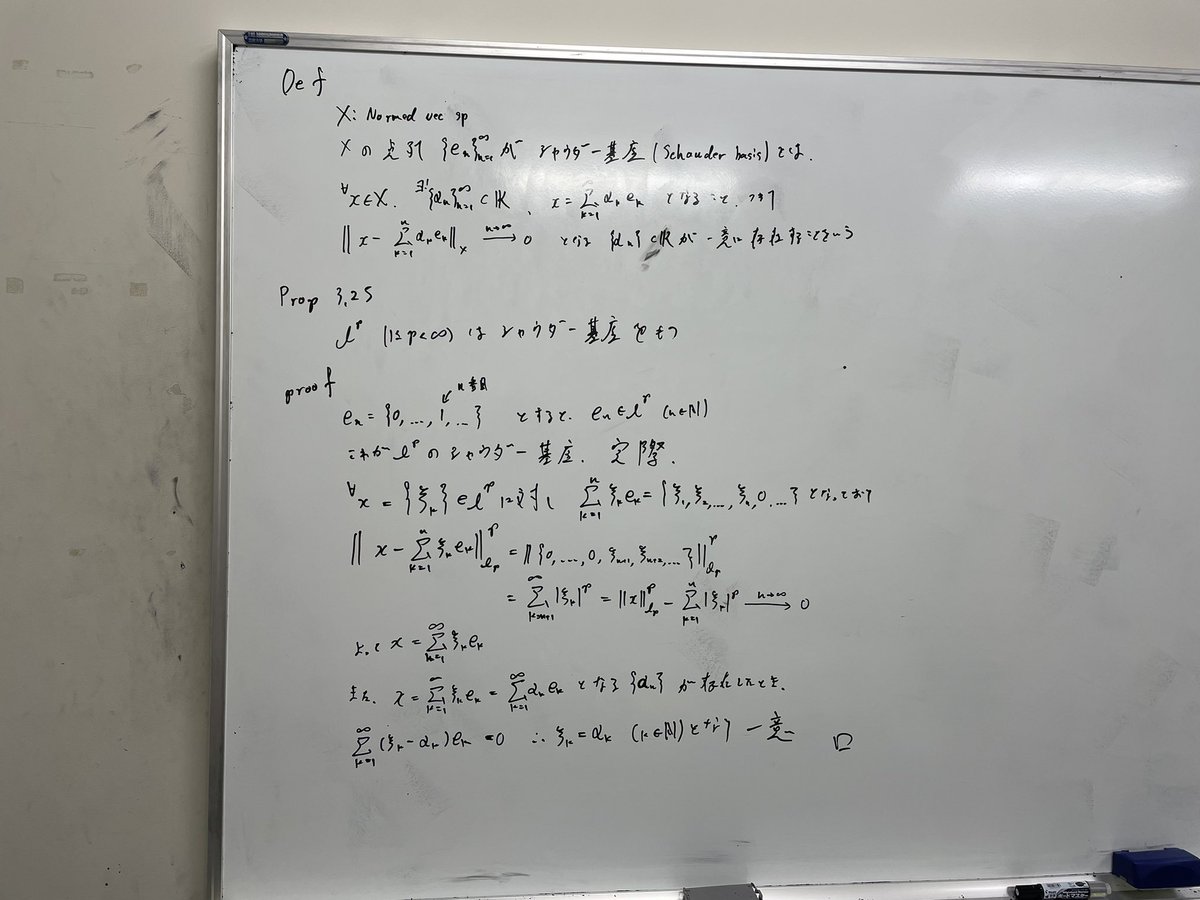 Def
X: Normed vec sp
Xの点列 {eₙ}ₙ₌₁^∞ が シャウダー基底 (Schauder basis) とは、
∀x∈X, ∃!{αₙ}ₙ₌₁^∞ ⊂ 𝕂, x = Σₖ₌₁^∞ αₖeₖ となること、つまり
‖x − Σₖ₌₁ⁿ αₖeₖ‖_X →(n→∞) 0 となる {αₙ} ⊂ 𝕂 が一意に存在することをいう
Prop 3.25
lᵖ (1≤p<∞) はシャウダー基底をもつ
proof
n番目
eₙ = {0, ..., 1, ...} とすると、eₙ∈lᵖ (n∈ℕ)
これが lᵖ のシャウダー基底. 実際.
∀x = {ξₖ} ∈ lᵖ に対し Σₖ₌₁ⁿ ξₖeₖ = {ξ₁, ξ₂, ..., ξₙ, 0, ...} となっており
‖x − Σₖ₌₁ⁿ ξₖeₖ‖_{lp}^p = ‖{0, ..., 0, ξₙ₊₁, ξₙ₊₂, ...}‖_{lp}^p
= Σₖ₌ₙ₊₁^∞ |ξₖ|ᵖ = ‖x‖_{lp}^p − Σₖ₌₁ⁿ |ξₖ|ᵖ →(n→∞) 0
よって x = Σₖ₌₁^∞ ξₖeₖ
また、x = Σₖ₌₁^∞ ξₖeₖ = Σₖ₌₁^∞ αₖeₖ となる {αₙ} が存在したとき、
Σₖ₌₁^∞ (ξₖ − αₖ)eₖ = 0 ∴ ξₖ = αₖ (k∈ℕ) となり 一意 □
ボードマスター